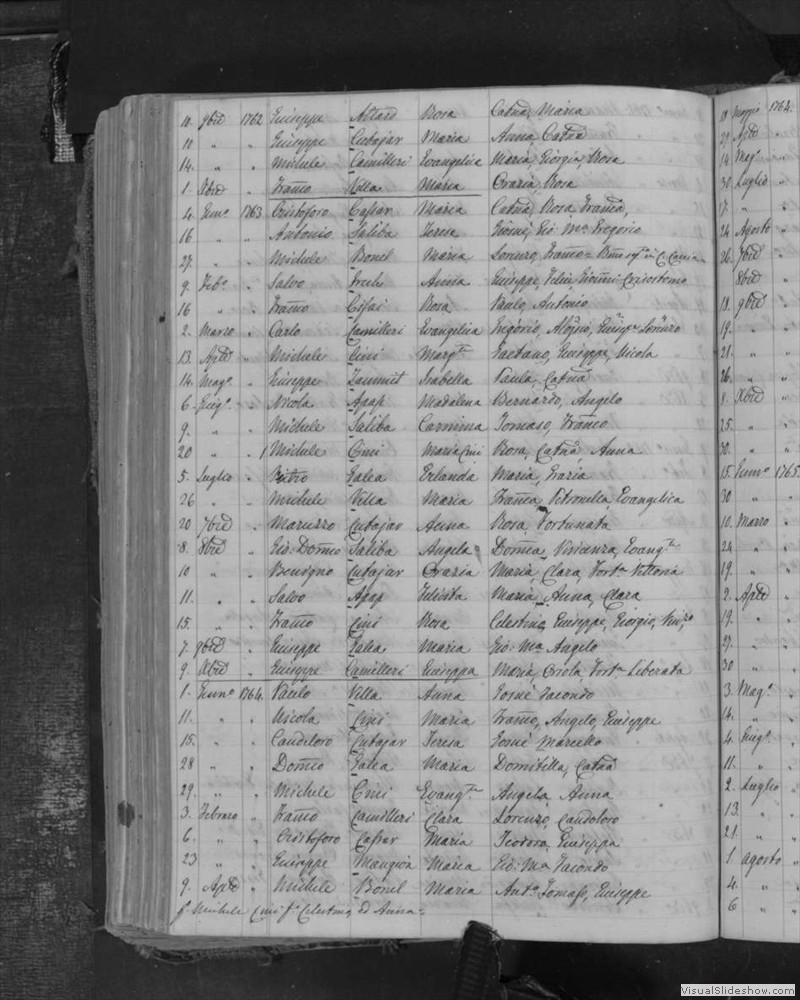 10. 9bre 1762 Giuseppe Attard Rosa Catna, Maria
10 " " Giuseppe Cutajar Maria Anna, Catna
14. " " Michele Camilleri Evangelica Maria, Giorgia, Rosa
1. Xbre " Franco Villa Maria Grazia, Rosa
4. Genno 1763 Cristoforo Cassar Maria Catna, Rosa, Franca,
16 " " Antonio Saliba Teresa Gio: Ma Gregorio
27. " " Michele Bonel Maria Lorenzo, Franco
9. Febo " Salvo Anna Giuseppe, Felice, Gioanni Crisostomo
16 " " Franco Rosa Paulo, Antonio
2. Marzo " Carlo Camilleri Evangelica Gregorio, Aloisio, Giuspe Lorenzo
13. Aple " Michele Cini Margta Gaetano, Giuseppe, Nicola
14. Mago " Giuseppe Zammit Isabella Paula, Catna
6. Giugo " Nicola Apap Madalena Bernardo, Angelo
9. " " Michele Saliba Carmina Tomaso, Franco
20 " " 1 Michele Cini Maria Cini Rosa, Catna, Anna
5. Luglio " Pietro Galea Erlanda Maria, Grazia
26 " " Michele Villa Maria Franca, Petronilla, Evangelica
20 7bre " Maruzzo Cutajar Anna Rosa, Fortunata
8. 8bre " Gio: Domco Saliba Angela Domca, Vincenza, Evangta
10 " " Benigno Cutajar Grazia Maria, Clara, Forta Vittoria
11. " " Salvo Apap Maria, Anna, Clara
15. " " Franco Cini Rosa Celestino, Giuseppe, Giorgio, Vinzo
7. 9bre " Giuseppe Galea Maria Gio: Ma Angelo
9. Xbre " Giuseppe Camilleri Giuseppa Maria, Forta Liberata
1. Genno 1764. Paulo Villa Anna Giosuè Facondo
11. " " Nicola Cini Maria Franco, Angelo, Giuseppe
15. " " Candeloro Cutajar Teresa Giosuè Marcello
28 " " Domco Galea Maria Domitilla, Catna
29. " " Michele Cini Evangta Angela, Anna
3. Febraro " Franco Camilleri Clara Lorenzo, Candeloro
6. " " Cristoforo Cassar Maria Teodora, Giuseppa
23 " " Giuseppe Mangion Maria Gio: Ma Facondo
9. Aple " Michele Bonel Maria Anto Tomaso, Giuseppe
Michele Cini Celestino ed Anna
Maggio 1764.
Aple
14 Mago
30. Luglio
17. "
24 Agosto
26. 7bre
8bre
18. 9bre
19. "
21. "
26. "
8. Xbre
25. "
30. "
15. Genno 1765.
30 "
10. Marzo
24 "
19. "
2. Aple
19. "
27. "
30 "
3. Mago
14. "
4. Giugo
11. "
2. Luglio
13. "
21. "
1. agosto
4. "
6 "
VisualSlideshow.com